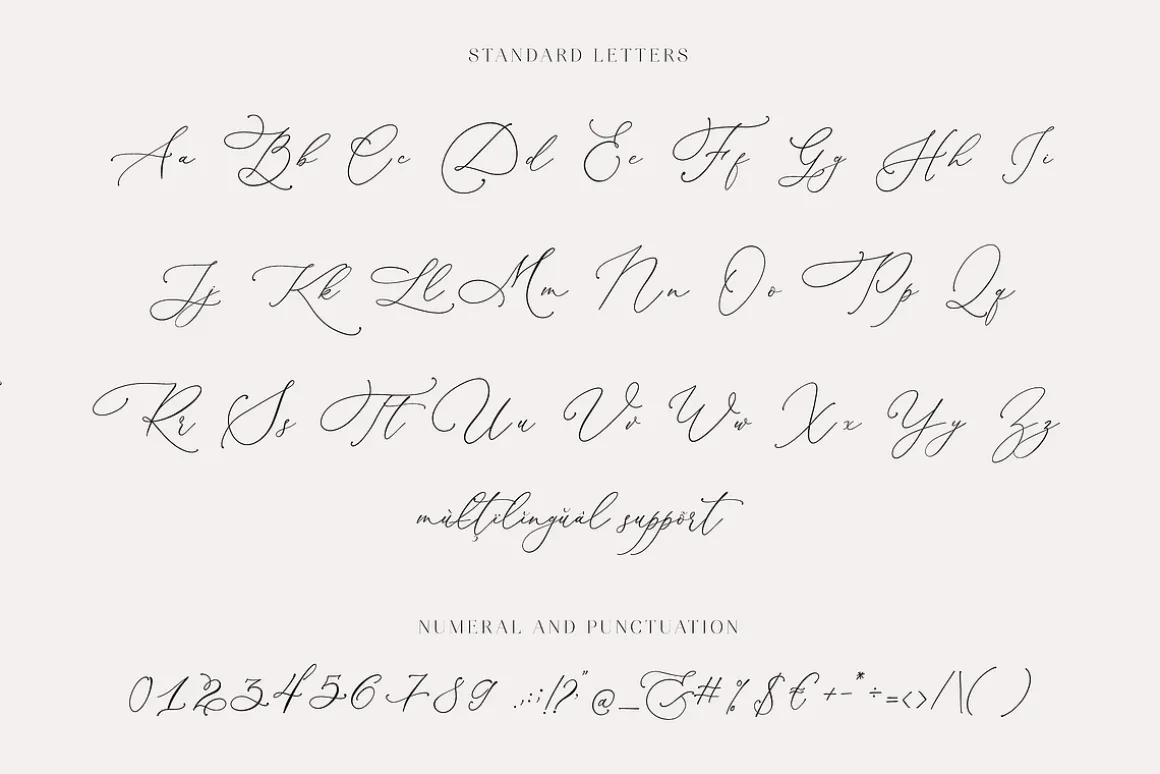 STANDARD LETTERS
Aa Bb Cc Dd Ee Ff Gg Hh Ii
Jj Kk Ll Mm Nn Oo Pp Qq
Rr Ss Tt Uu Vv Ww Xx Yy Zz
multilingual support
NUMERAL AND PUNCTUATION
0123456789 .,:;!?"'@_&#%$€+-*÷=<>/|\( )